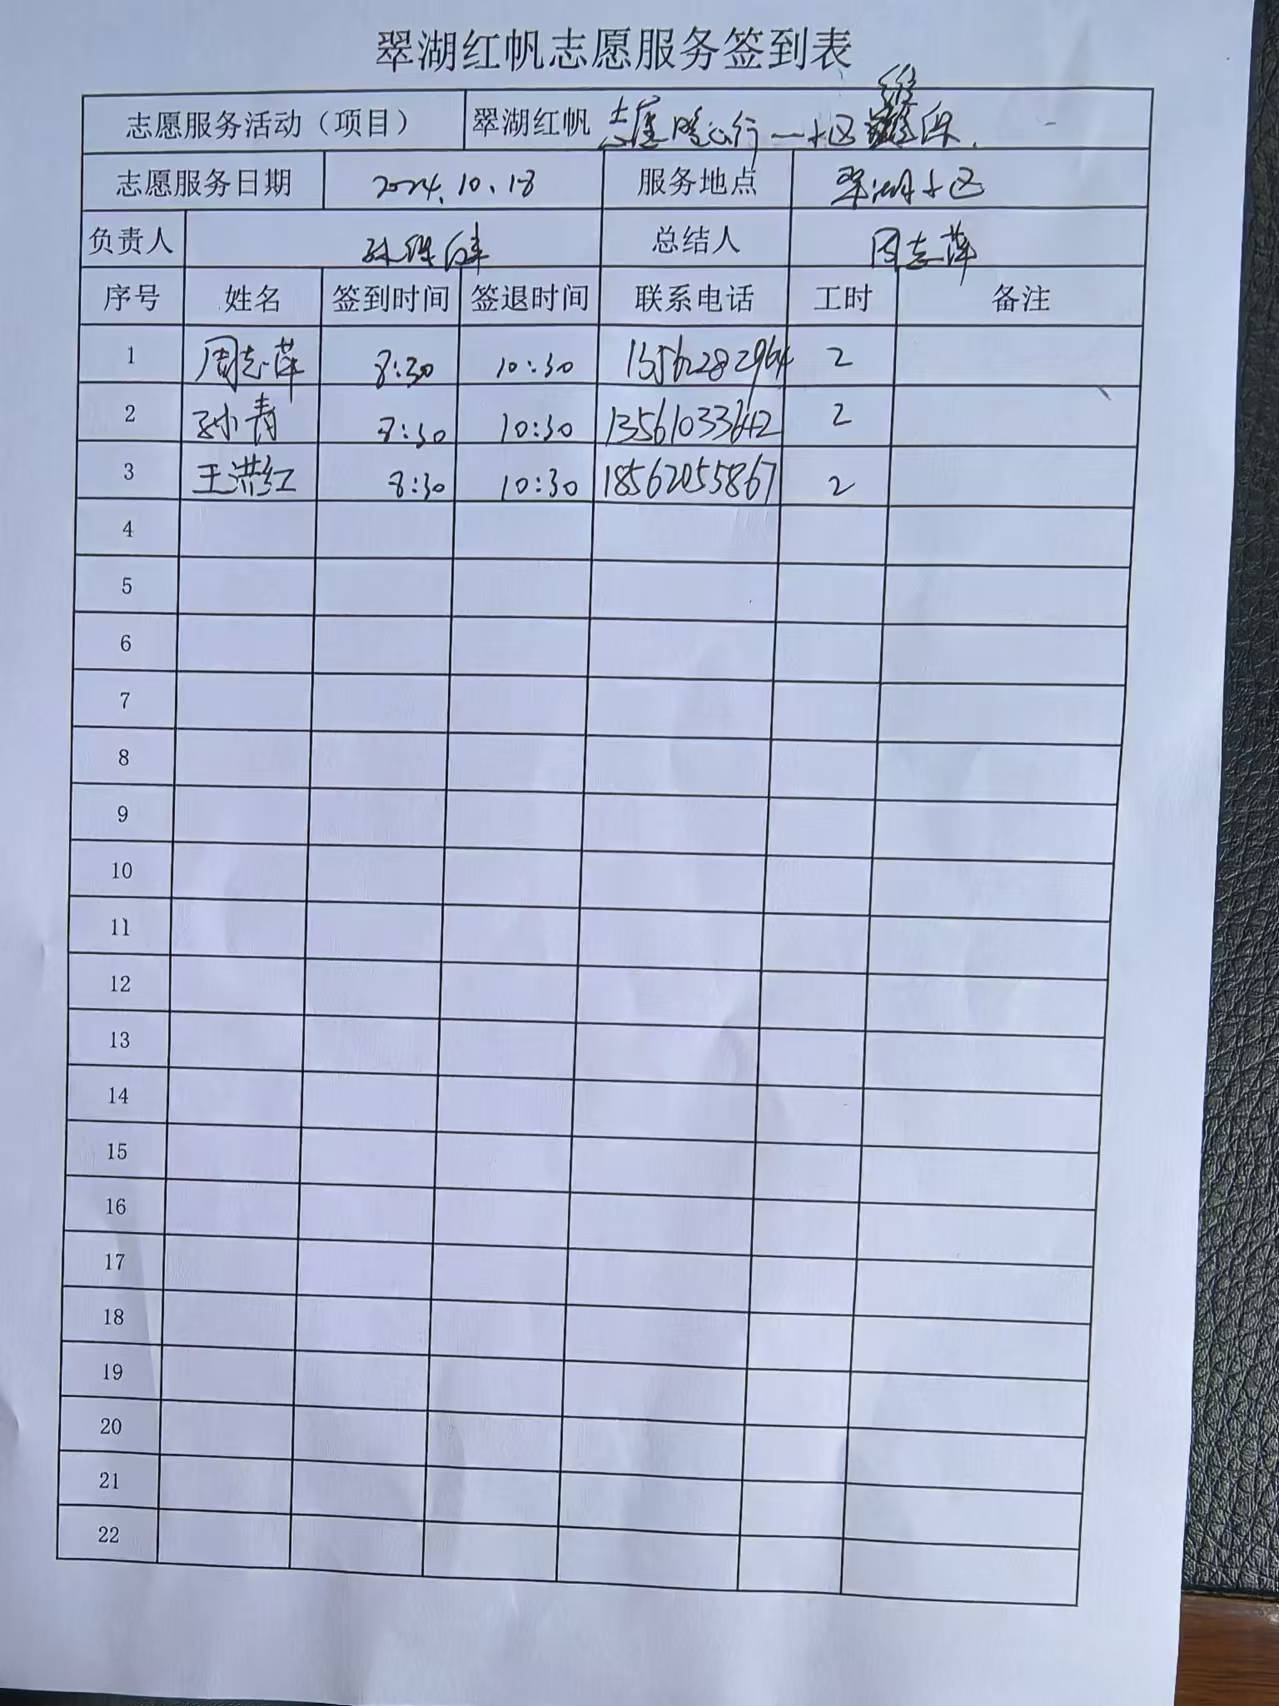 翠湖红帆志愿服务签到表
志愿服务活动（项目） 翠湖红帆 志愿暖心行—小区维保.
志愿服务日期 2024.10.18 服务地点 翠湖小区
负责人 孙 总结人 周志萍
序号 姓名 签到时间 签退时间 联系电话 工时 备注
1 周志萍 8:30 10:30 2
2 孙青 8:30 10:30 13561033642 2
3 王洪红 8:30 10:30 18562055867 2
4
5
6
7
8
9
10
11
12
13
14
15
16
17
18
19
20
21
22